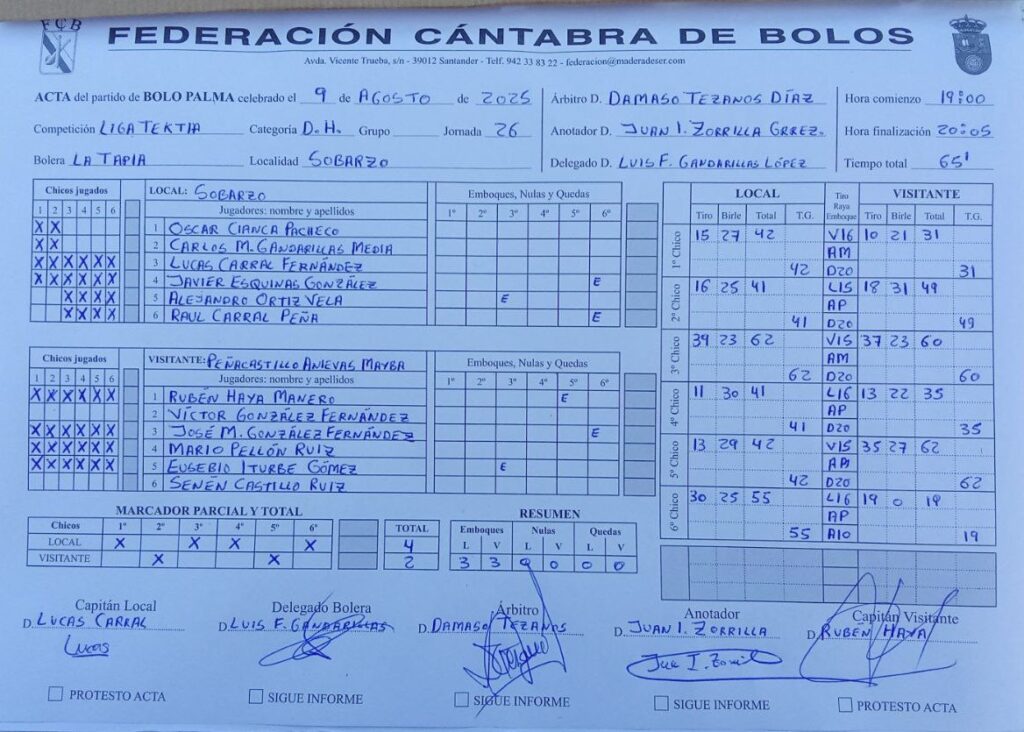 FCB
FEDERACIÓN CÁNTABRA DE BOLOS
Avda. Vicente Trueba, s/n - 39012 Santander - Telf. 942 33 83 22 - federacion@maderadeser.com
ACTA del partido de BOLO PALMA celebrado el 9 de AGOSTO de 2025
Competición LIGA TEKTIA Categoría D.H. Grupo Jornada 26
Bolera LA TAPIA Localidad SOBARZO
Árbitro D. DAMASO TEZANOS DÍAZ
Anotador D. JUAN I. ZORRILLA GRREZ.
Delegado D. LUIS F. GANDARILLAS LÓPEZ
Hora comienzo 19:00
Hora finalización 20:05
Tiempo total 65'
Chicos jugados LOCAL: SOBARZO Emboques, Nulas y Quedas
1 2 3 4 5 6 Jugadores: nombre y apellidos 1º 2º 3º 4º 5º 6º
X X 1 OSCAR CIANCA PACHECO
X X 2 CARLOS M. GANDARILLAS MEDIA
X X X X X X 3 LUCAS CARRAL FERNÁNDEZ
X X X X X X 4 JAVIER ESQUINAS GONZÁLEZ E
X X X X 5 ALEJANDRO ORTIZ VELA E
X X X X 6 RAUL CARRAL PEÑA E
Chicos jugados VISITANTE: PEÑACASTILLO ANIEVAS MAYBA Emboques, Nulas y Quedas
1 2 3 4 5 6 Jugadores: nombre y apellidos 1º 2º 3º 4º 5º 6º
X X X X X X 1 RUBÉN HAYA MANERO E
2 VÍCTOR GONZÁLEZ FERNÁNDEZ
X X X X X X 3 JOSÉ M. GONZÁLEZ FERNÁNDEZ E
X X X X X X 4 MARIO PELLÓN RUIZ
X X X X X X 5 EUSEBIO ITURBE GÓMEZ E
6 SENÉN CASTILLO RUIZ
LOCAL Tiro Raya Emboque VISITANTE
Tiro Birle Total T.G. Tiro Birle Total T.G.
1º Chico 15 27 42 V16 10 21 31
AM
42 D20 31
2º Chico 16 25 41 L15 18 31 49
AP
41 D20 49
3º Chico 39 23 62 V15 37 23 60
AM
62 D20 60
4º Chico 11 30 41 L16 13 22 35
AP
41 D20 35
5º Chico 13 29 42 V15 35 27 62
42 D20 62
6º Chico 30 25 55 L16 19 0 19
AP
55 A10 19
MARCADOR PARCIAL Y TOTAL
Chicos 1º 2º 3º 4º 5º 6º TOTAL
LOCAL X X X X 4
VISITANTE X X 2
RESUMEN
Emboques Nulas Quedas
L V L V L V
3 3 0 0 0 0
Capitán Local
D. LUCAS CARRAL
Lucas
Delegado Bolera
D. LUIS F. GANDARILLAS
Árbitro
D. DAMASO TEZANOS
Anotador
D. JUAN I. ZORRILLA
Capitán Visitante
D. RUBÉN HAYA
PROTESTO ACTA
SIGUE INFORME
SIGUE INFORME
SIGUE INFORME
PROTESTO ACTA